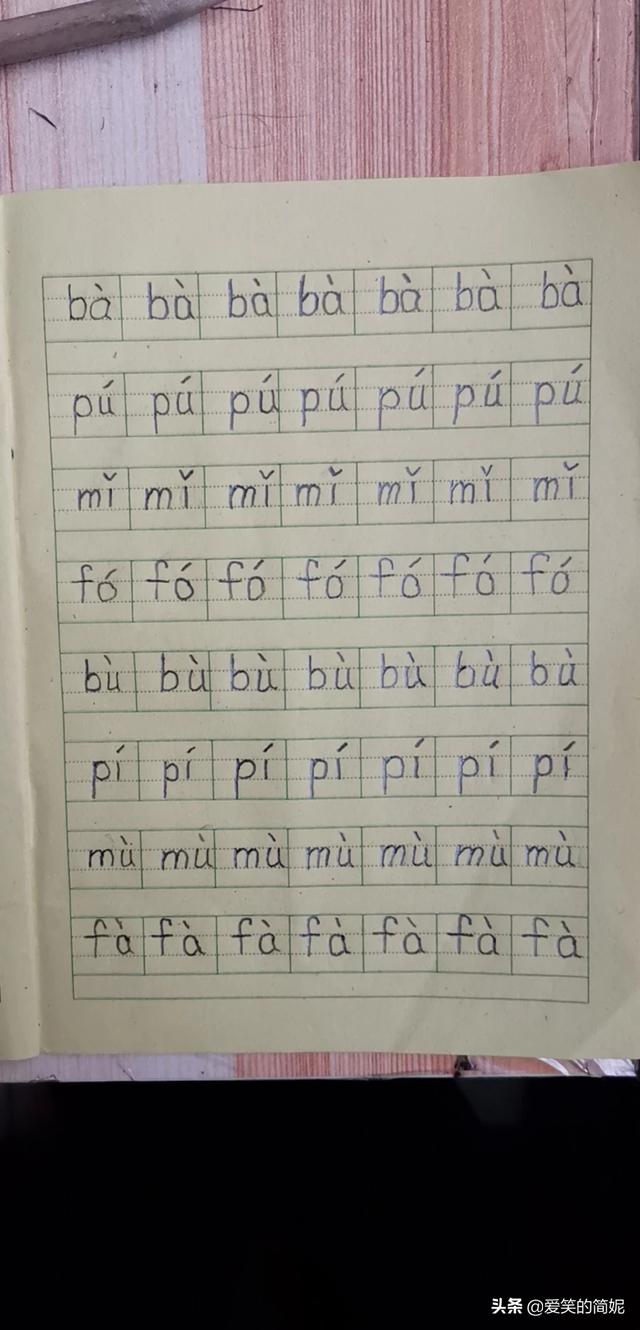 bà bà bà bà bà bà bà
pú pú pú pú pú pú pú
mǐ mǐ mǐ mǐ mǐ mǐ mǐ
fó fó fó fó fó fó fó
bù bù bù bù bù bù bù
pí pí pí pí pí pí pí
mù mù mù mù mù mù mù
fà fà fà fà fà fà fà
头条 @爱笑的简妮